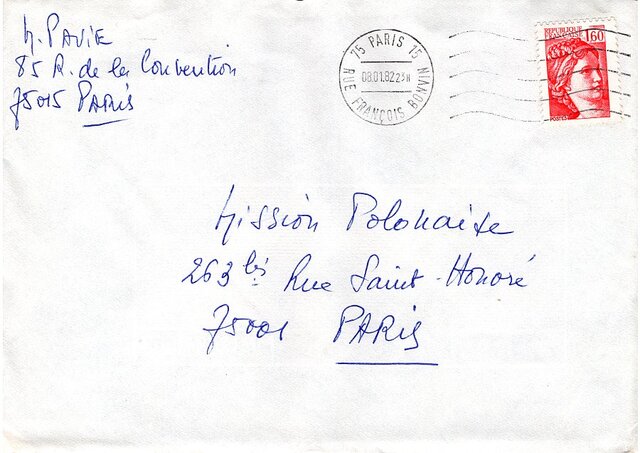 M. PAVIE
85 R. de la Convention
75015 PARIS
75 PARIS 15
08.01.82 23H
RUE FRANÇOIS BONVIN
REPUBLIQUE
FRANCAISE
1,60
POSTES
Mission Polonaise
263 bis Rue Saint-Honoré
75001 PARIS